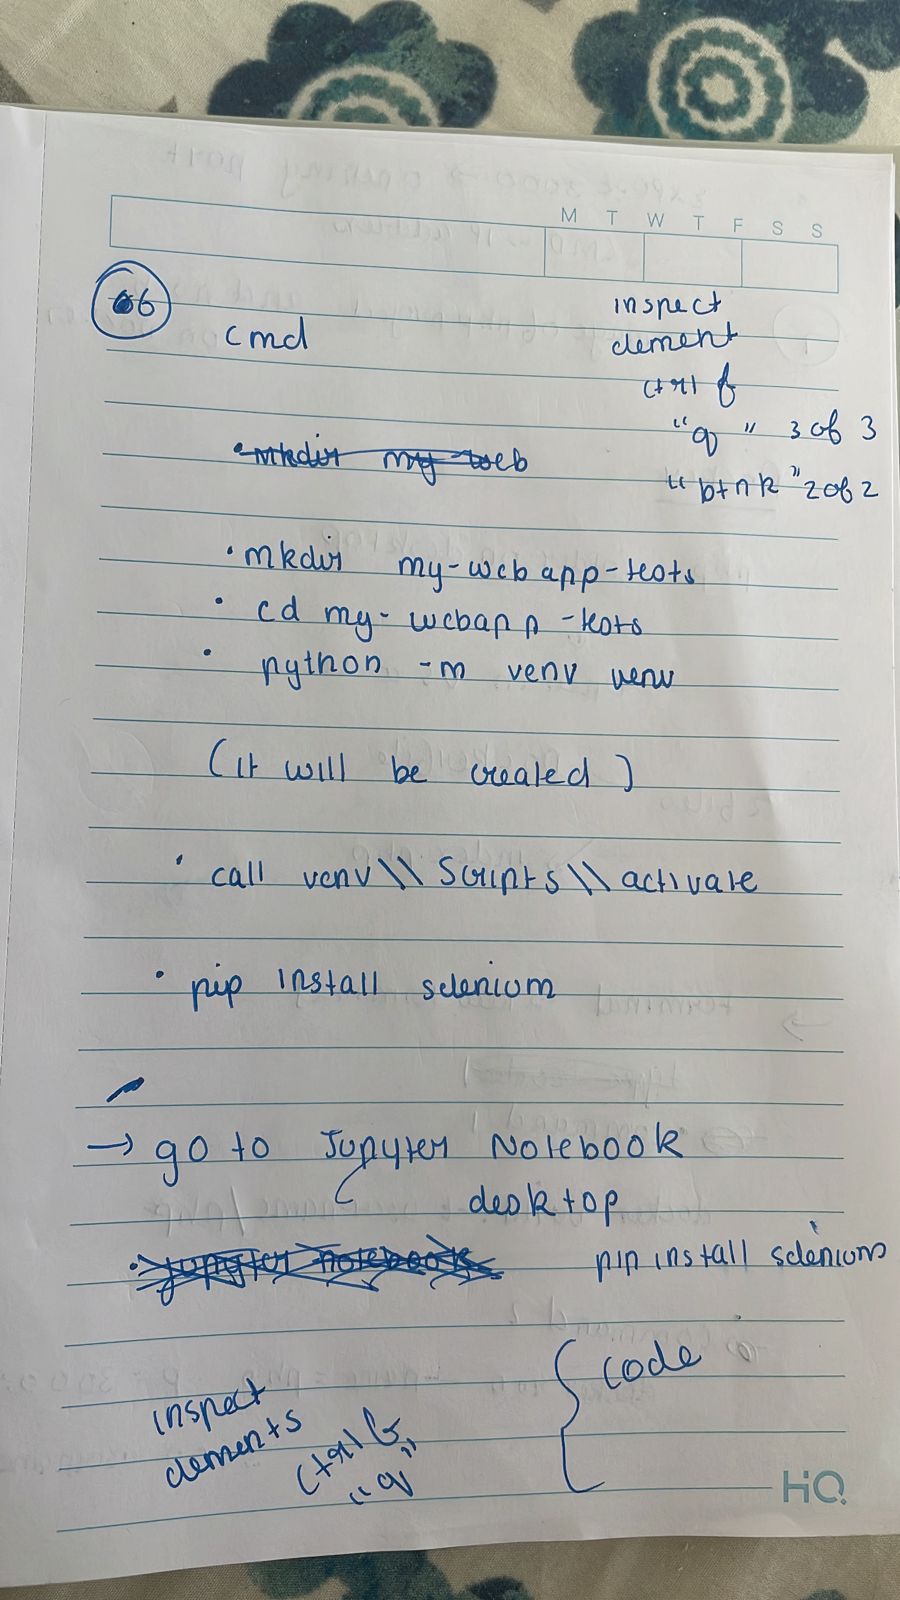 M T W T F S S
06
cmd
inspect
element
ctrl f
"q" 3 of 3
"btnk" 2 of 2
• mkdir my web
• mkdir my-webapp-tests
• cd my-webapp-tests
• python -m venv venv
(it will be created)
• call venv\\Scripts\\activate
• pip install selenium
→ go to Jupyter Notebook
desktop
• jupyter notebook
pip install selenium
{ code
inspect
elements
ctrl f
"q"
HQ